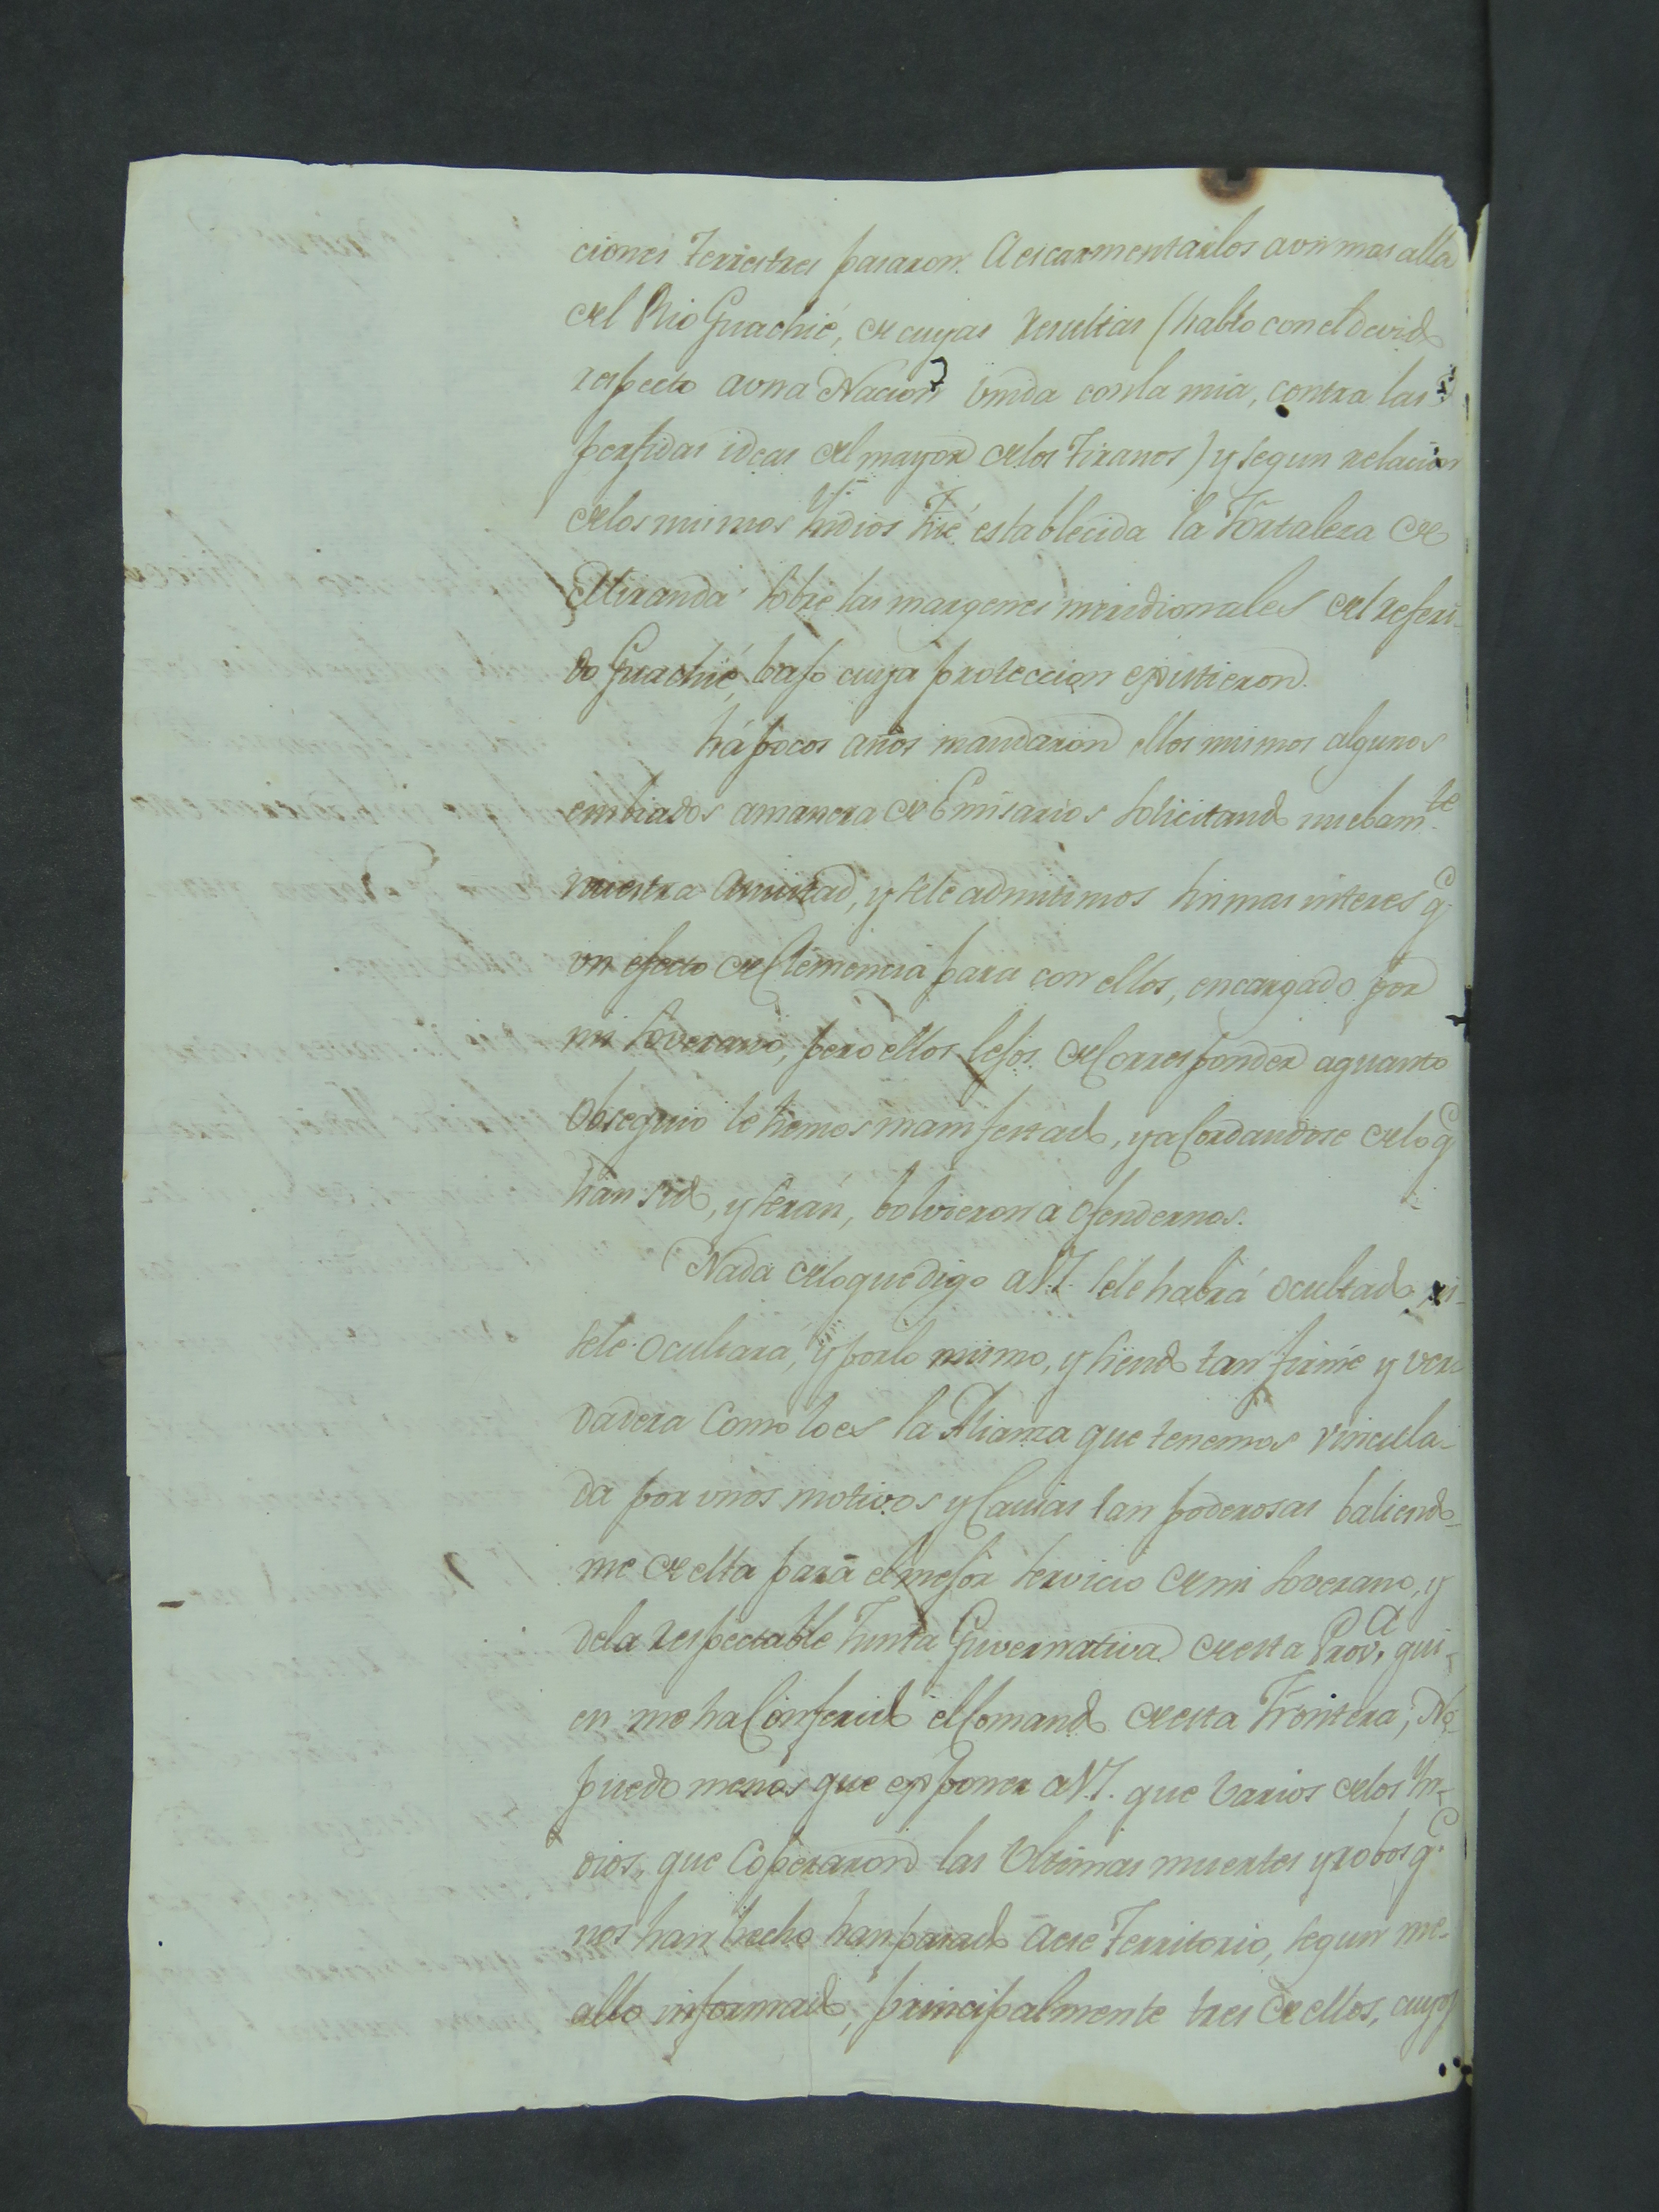 ciones terrestres pasaron. A escarmentarlos aun mas alla
del Rio Guachié, de cuyas resultas (hablo con el devido
respecto a vna Nacion vnida con la mia, contra las
perfidas ideas del mayor de los Tiranos) y segun relacion
de los mismos Yndios fué establecida la Fortaleza de
Miranda sobre las margenes meridionales del referi-
do Guachié, bajo cuya proteccion existieron.
há pocos años mandaron ellos mismos algunos
embiados a manera de Emisarios solicitando nuebamte
nuestra amistad, y sele admitimos sin mas interes q.e
vn efecto de Clemencia para con ellos, encargado por
mi Soverano, pero ellos lejos de Corresponder aquanto
obsequio le hemos manifestado, y aCordandose de lo q.e
han sido, y serán, bolvieron a ofendernos.
Nada de lo que digo a V.I. sele habrá ocultado ni-
sele ocultará, y por lo mismo, y siendo tan firme y ver-
dadera Como lo es la Alianza que tenemos vincula-
da por vnos motivos y Causas tan poderosas baliendo-
me de ella para el mejor servicio de mi Soverano, y
de la respectable Junta Guvernativa de esta Prov.a qui-
en me ha Conferido el Comando de esta Frontera, No
puedo menos que exponer a V.I. que varios de los Yn-
dios, que Coperaron las Vltimas muertes y robos q.e
nos han hecho han pasado á ese Territorio, segun me-
allo informado, principalmente tres de ellos, cuyos